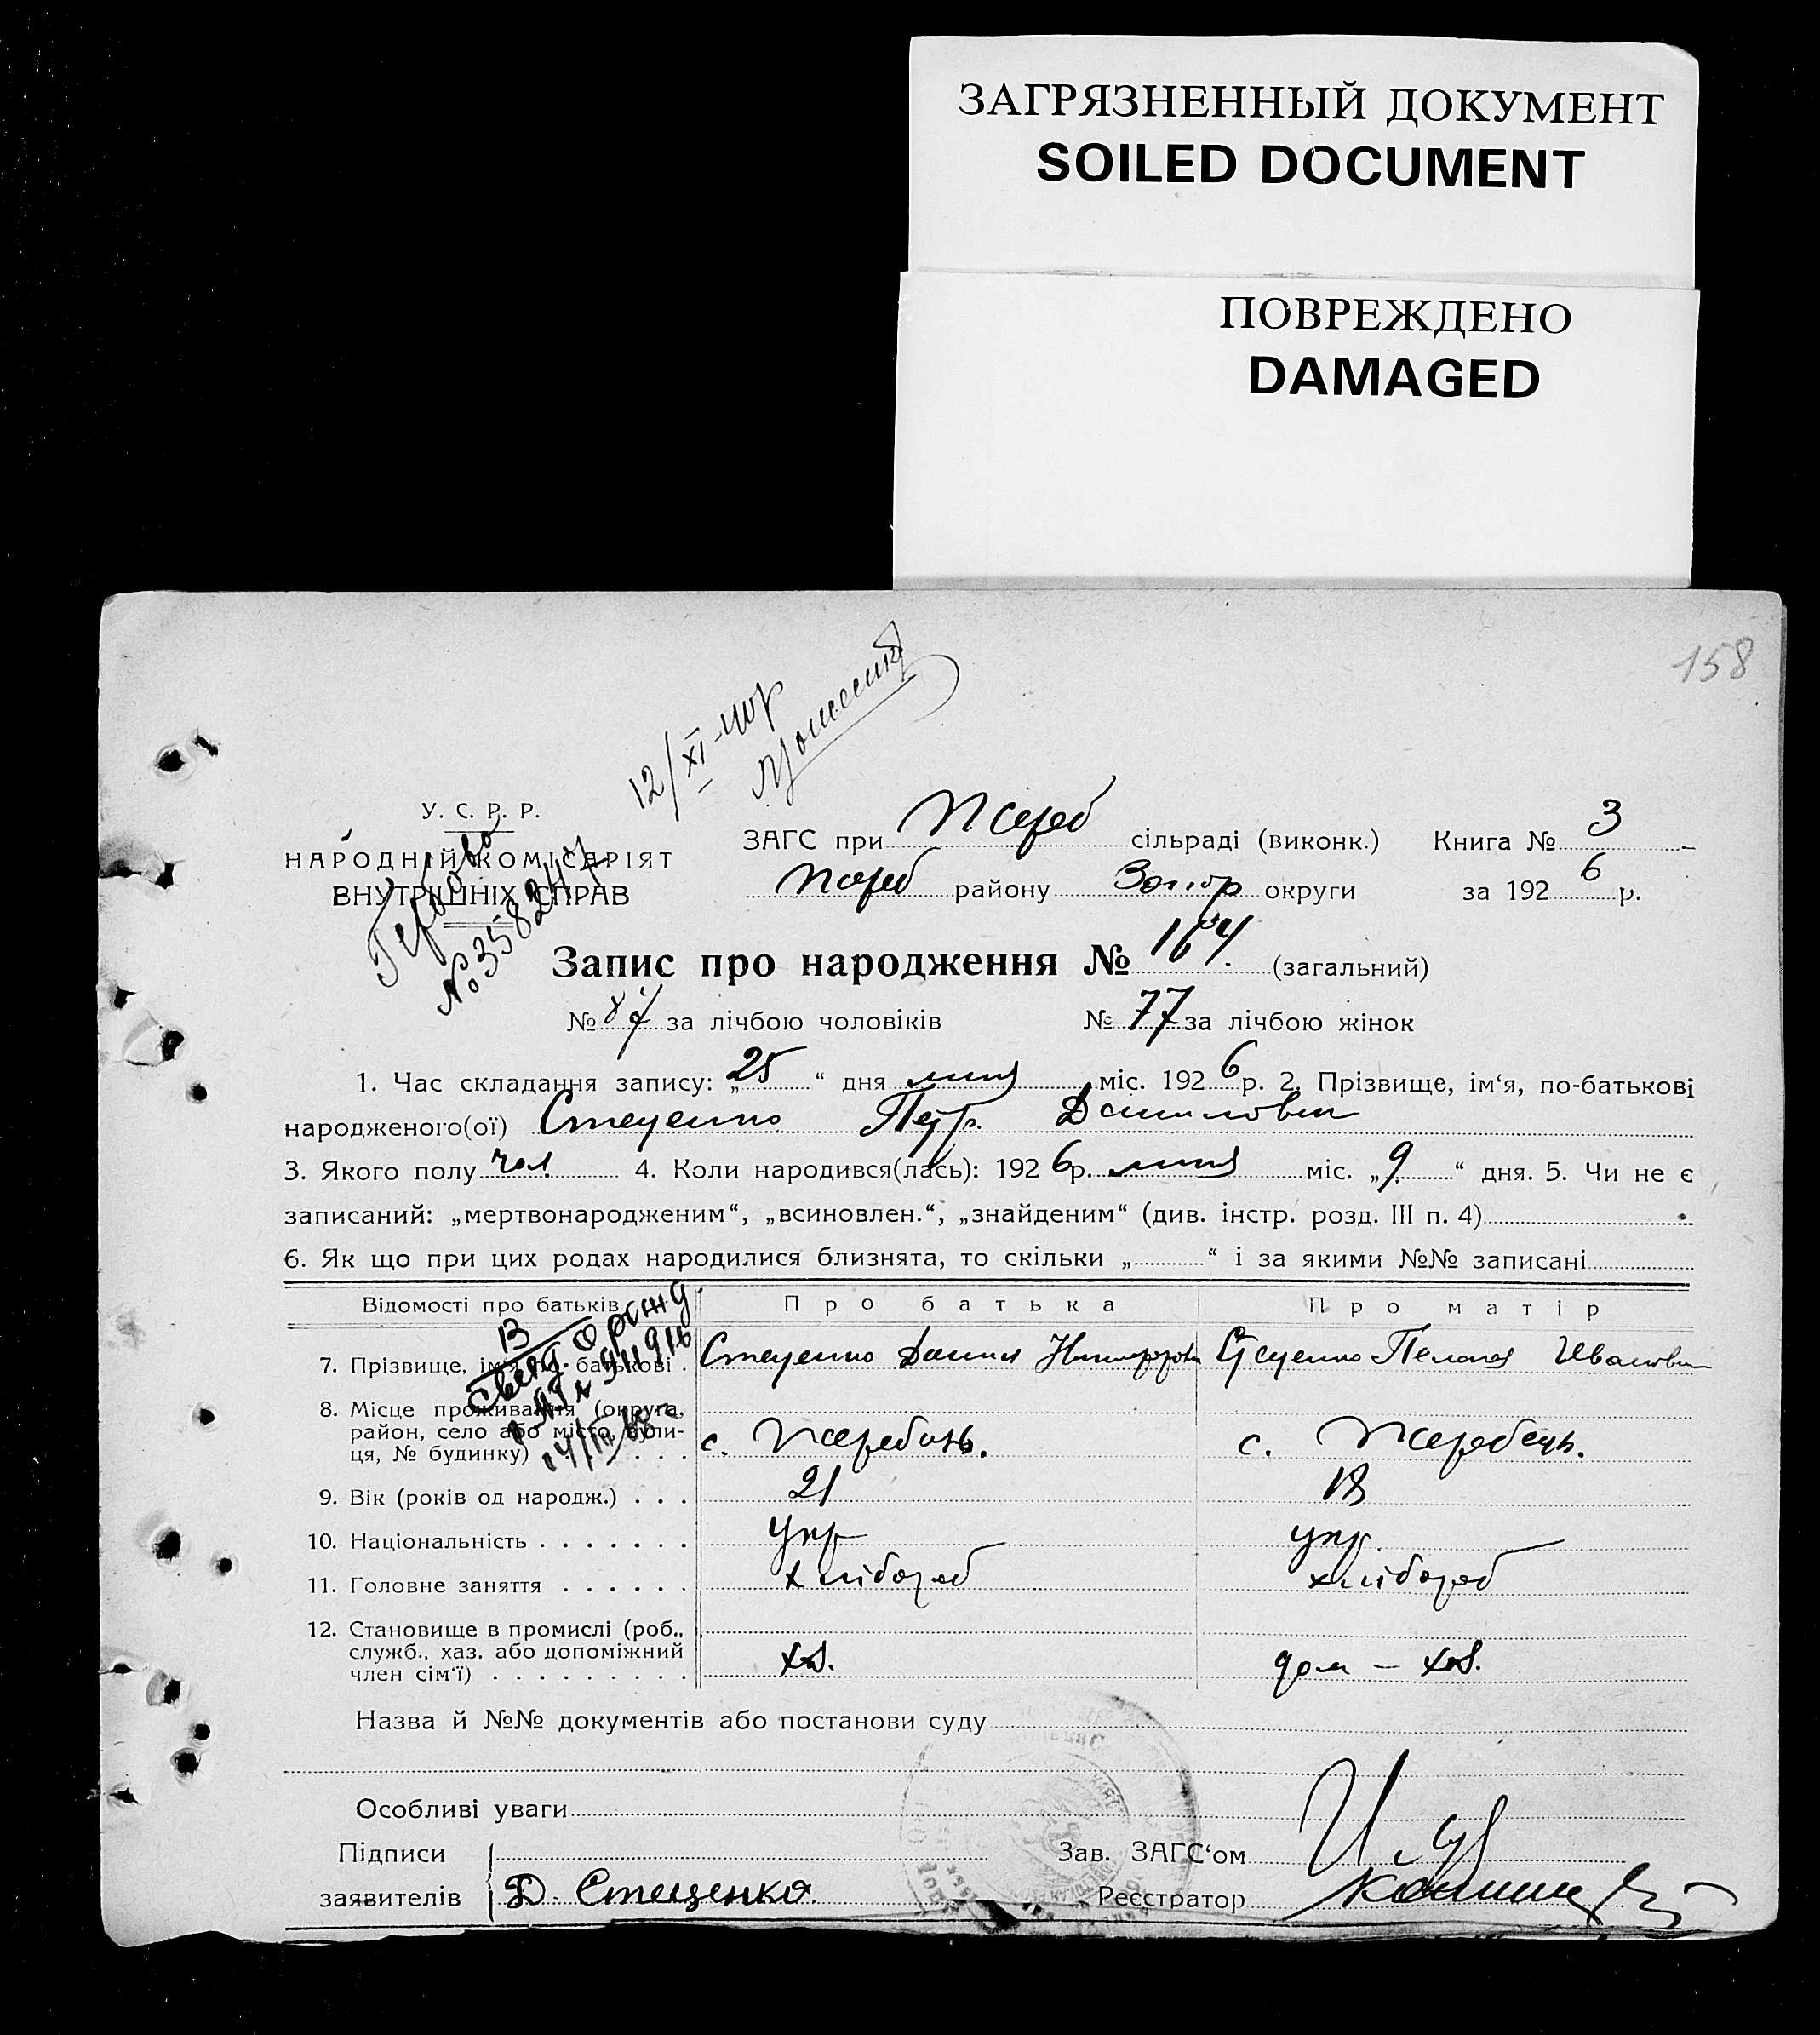 ЗАГРЯЗНЕННЫЙ ДОКУМЕНТ
SOILED DOCUMENT
ПОВРЕЖДЕНО
DAMAGED
158
12/XI-40р
У. С. Р. Р.
НАРОДНІЙ КОМІСАРІЯТ
ВНУТРІШНІХ СПРАВ
Гербово
№ 358247
ЗАГС при Жереб сільраді (виконк.) Книга № 3
Жереб району Запор округи за 1926 р.
Запис про народження № 164 (загальний)
№ 87 за лічбою чоловіків № 77 за лічбою жінок
1. Час складання запису: „25“ дня липня міс. 1926 р. 2. Прізвище, ім‘я, по-батькові
народженого(ої) Стеценко Петр Данилович
3. Якого полу чол 4. Коли народився(лась): 1926 р. липня міс. „9“ дня. 5. Чи не є
записаний: „мертвонародженим“, „всиновлен.“, „знайденим“ (див. інстр. розд. III п. 4)
6. Як що при цих родах народилися близнята, то скільки „ “ і за якими №№ записані
Відомості про батьків Про батька Про матір
7. Прізвище, ім‘я по батькові Стеценко Данил Никифоров Стеценко Пелагея Ивановн
8. Місце проживання (округа,
район, село або місто, вули-
ця, № будинку) с. Жеребець. с. Жеребець.
9. Вік (років од народж.) 21 18
10. Національність укр укр.
11. Головне заняття хлібороб хлібороб
12. Становище в промислі (роб.,
служб., хаз. або допоміжний
член сім‘ї) хоз. дом – хоз.
Назва й №№ документів або постанови суду
Особливі уваги
Підписи Зав. ЗАГС‘ом
заявителів Д. Стеценко Реєстратор